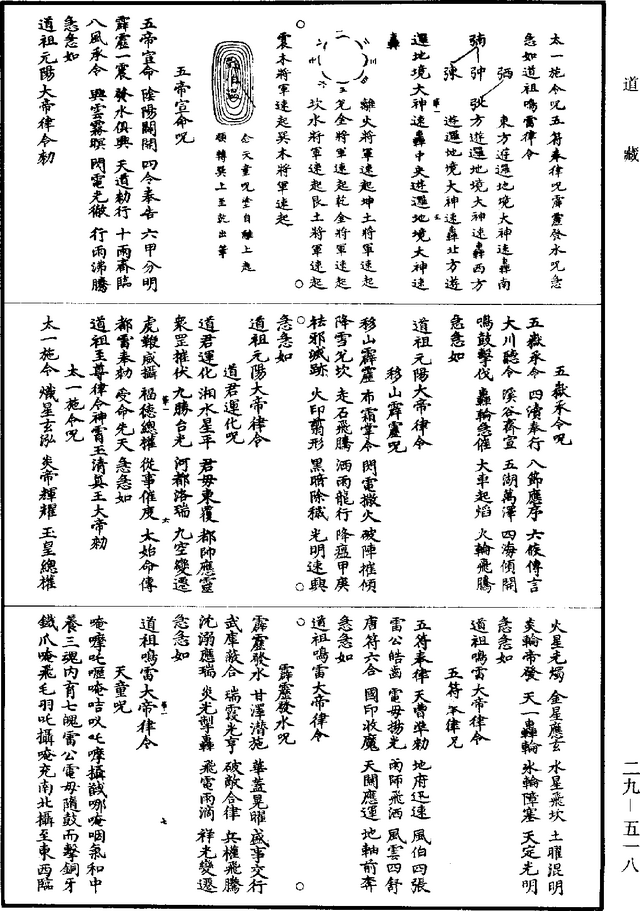 道藏
太一施令咒五符奉律咒霹靂發水咒急
急如道祖鳴雷律令
東方遊邏地境大神速轟南
方遊邏地境大神速轟西方
遊邏地境大神速轟北方遊
邏地境大神速轟中央遊邏地境大神速
轟
離火將軍速起坤土將軍速起
兌金將軍速起乾金將軍速起
坎水將軍速起艮土將軍速起
震木將軍速起巽木將軍速起
念天童咒雲自離上起
順轉巽上至乾出筆
五帝宣命咒
五帝宣命 陰陽闢開 四令奉告 六甲分明
霹靂一震 發水俱興 天道勅行 十雨齊臨
八風承令 興雲霧暝 閃電光徹 行雨沸騰
急急如
道祖元陽大帝律令勅
五嶽承令咒
五嶽承令 四瀆奉行 八節應序 六候傳言
大川聽令 溪谷齊宣 五湖萬澤 四海傾開
鳴鼓擊伐 轟輪急催 大車起焰 火輪飛騰
急急如
道祖元陽大帝律令
移山霹靂咒
移山霹靂 布霜掌令 閃電撒火 破陣摧傾
降雪光坎 走石飛騰 洒雨龍行 降瘟甲庚
祛邪滅跡 火印翦形 黑暗除穢 光明速興
急急如
道祖元陽大帝律令
道君運化咒
道君運化 湘水星平 君毋東覆 都帥應靈
衆罡摧伏 九勝台光 河都洛瑞 九空變遷
虎報威攝 福德總權 從事催度 太始命傳
都雷奉勅 受命先天 急急如
道祖至尊律令神霄玉清真王大帝勅
太一施令咒
太一施令 熾星玄泓 炎帝輝耀 玉皇總權
火星光燭 金星應玄 水星飛坎 土曜混明
炎輪帝發 天一轟輪 水輪障塞 天定光明
急急如
道祖鳴雷大帝律令
五符奉律咒
五符奉律 天曹準勅 地府迅速 風伯四張
雷公皓齒 電母揚光 雨師飛洒 風雲四舒
唐符六合 國印收魔 天關應運 地軸前奔
急急如
道祖鳴雷大帝律令
霹靂發水咒
霹靂發水 甘澤潛施 華蓋晃曜 盛事交行
武庫蔽合 瑞霞光亨 破敵合律 兵權飛騰
沈溺應瑞 炎光掣轟 飛電雨滴 祥光變遷
急急如
道祖鳴雷大帝律令
天童咒
唵嚤吒𠸪唵咭㕥吒嚤攝馘哪唵咽氣和中
養三魂內育七魄雷公電母隨鼓而擊銅牙
鐵爪唵飛毛羽吒攝唵充南北攝至東西臨
二九—五一八